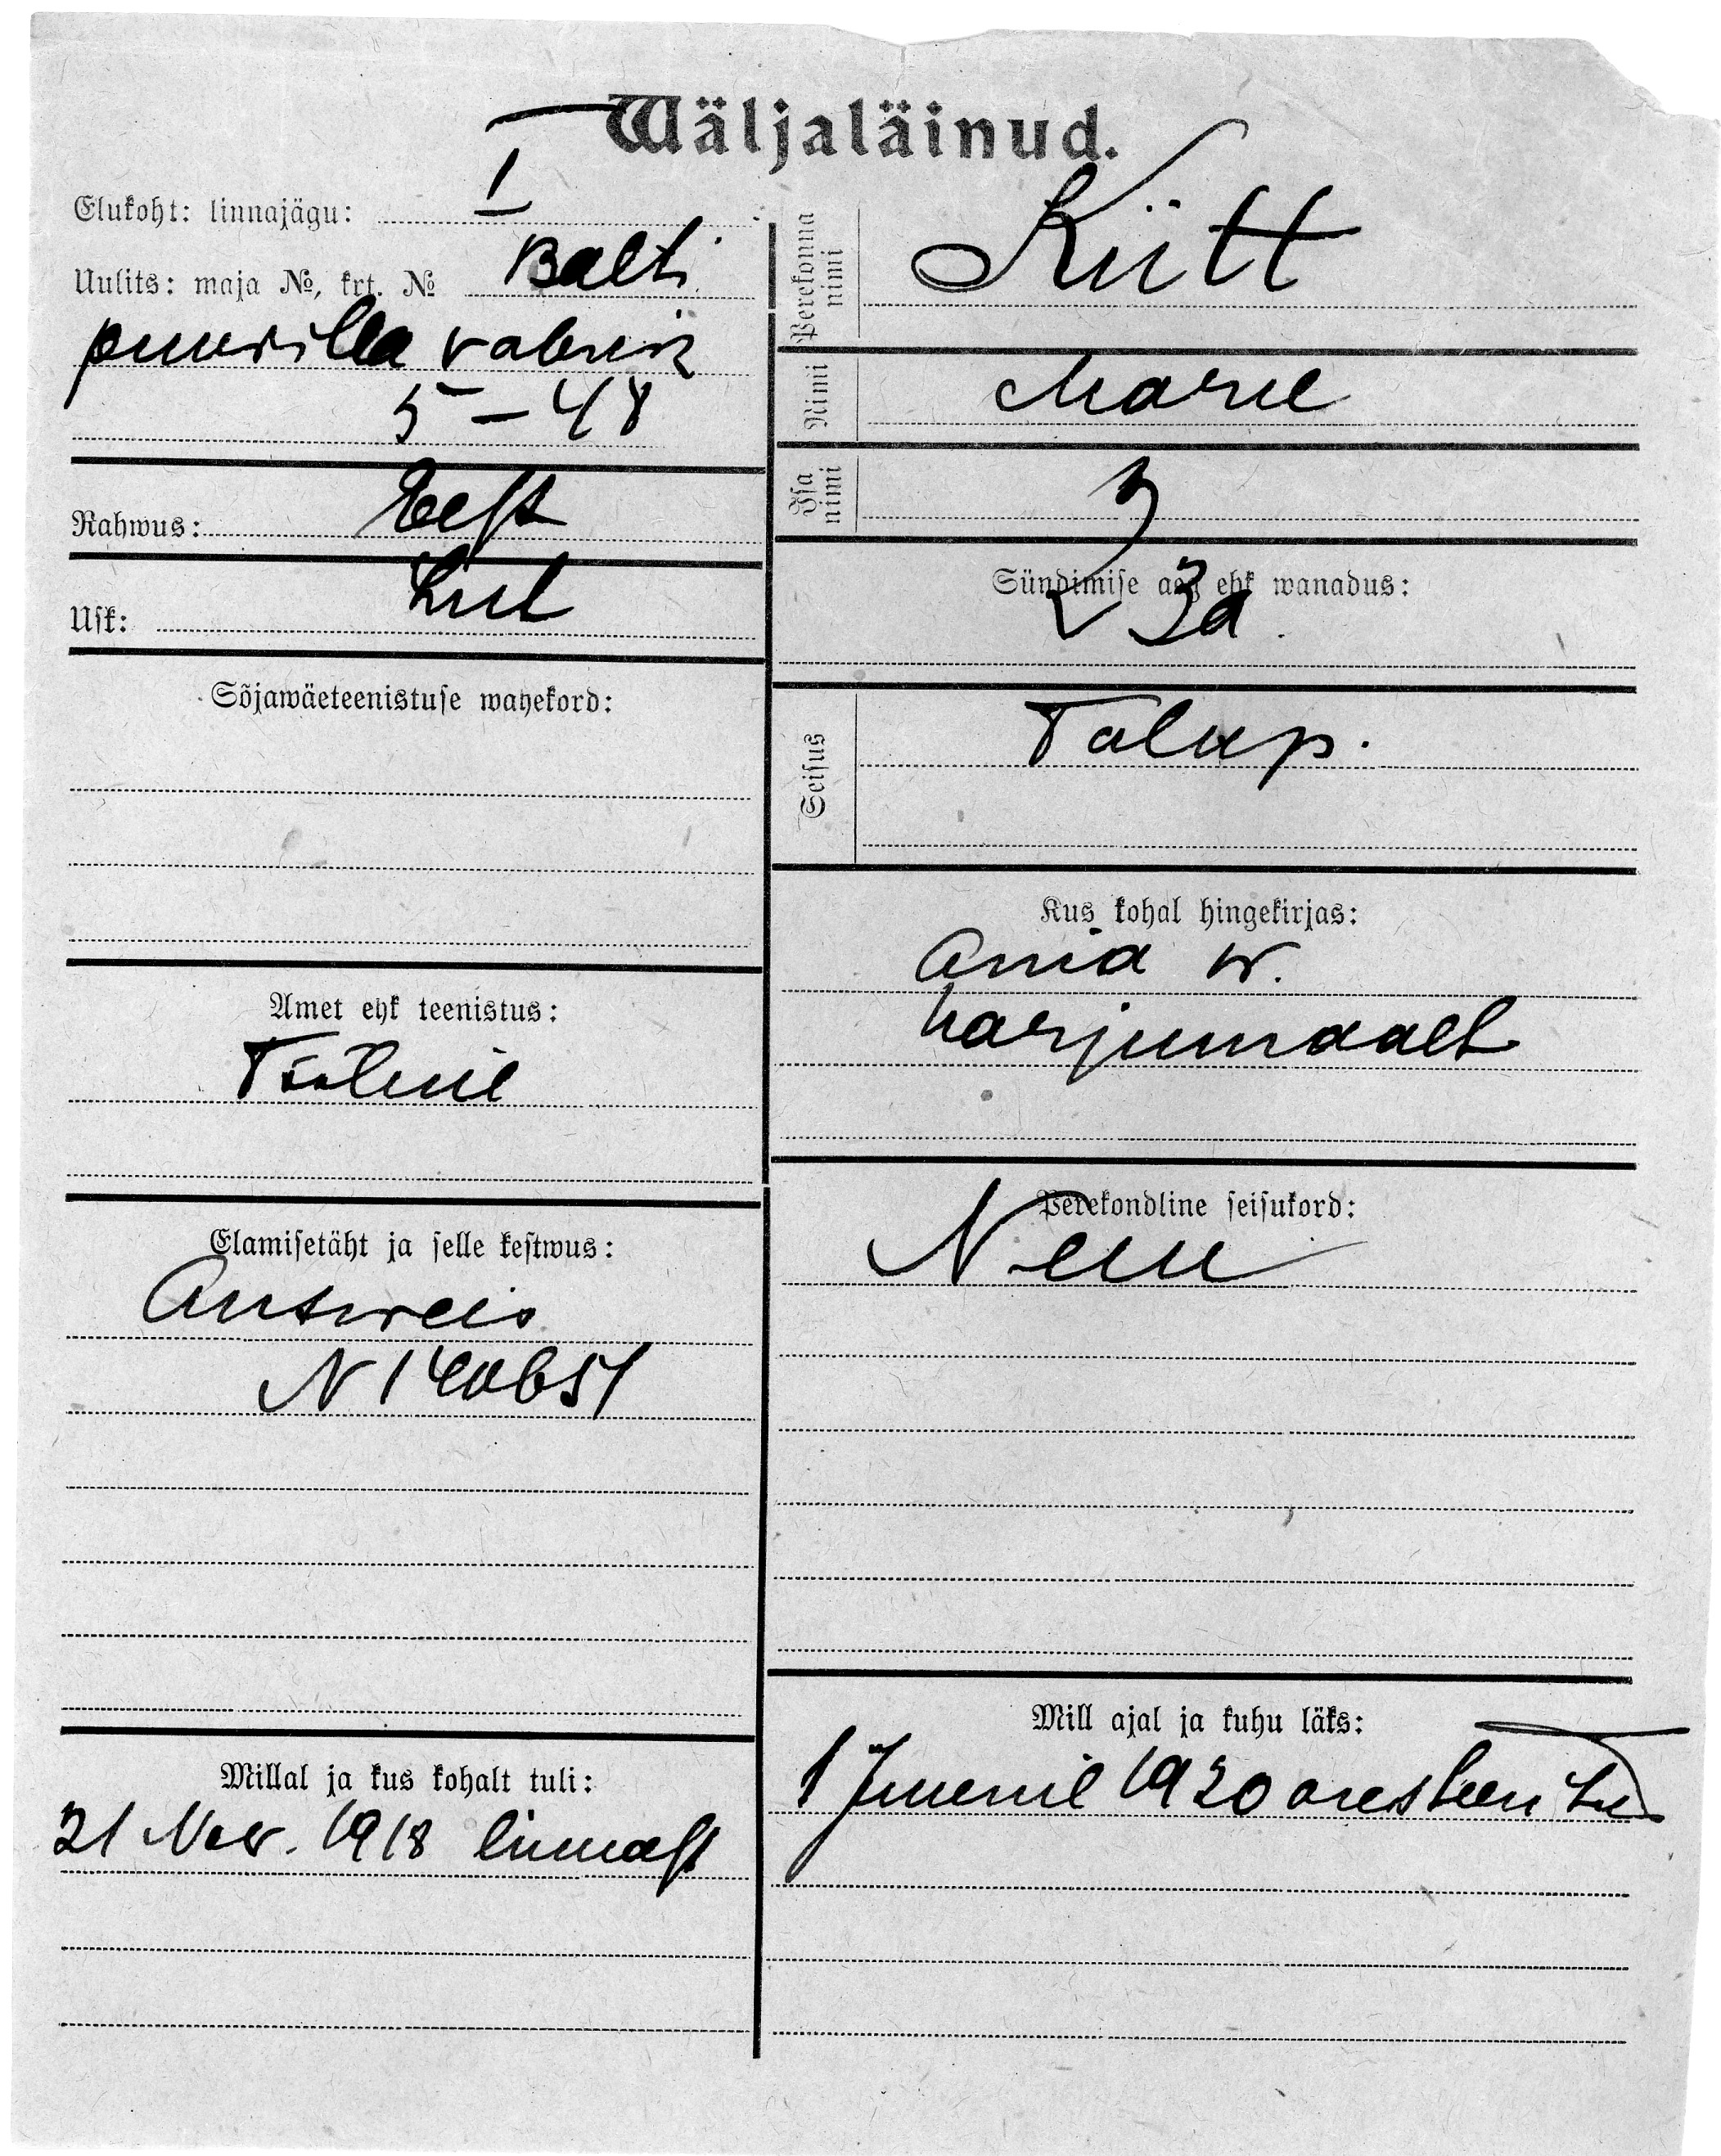 Wäljaläinud.
Elukoht: linnajägu: I
Uulits: maja №, krt. № Balti
puuvilla vabrik
5 – 48
Rahwus: Eest
Usk: Lut
Sõjawäeteenistuse wahekord:
Amet ehk teenistus:
Tööline
Elamisetäht ja selle kestwus:
Ausweis
N 140651
Millal ja kus kohalt tuli:
21 Nov. 1918 linnast
Perekonna nimi Kütt
Nimi Marie
Isa nimi
Sündimise aeg ehk wanadus:
23a.
Seisus Talup.
Kus kohal hingekirjas:
Ania w.
Harjumaalt
Perekondline seisukord:
Neiu
Mill ajal ja kuhu läks:
1 Juunil 1920